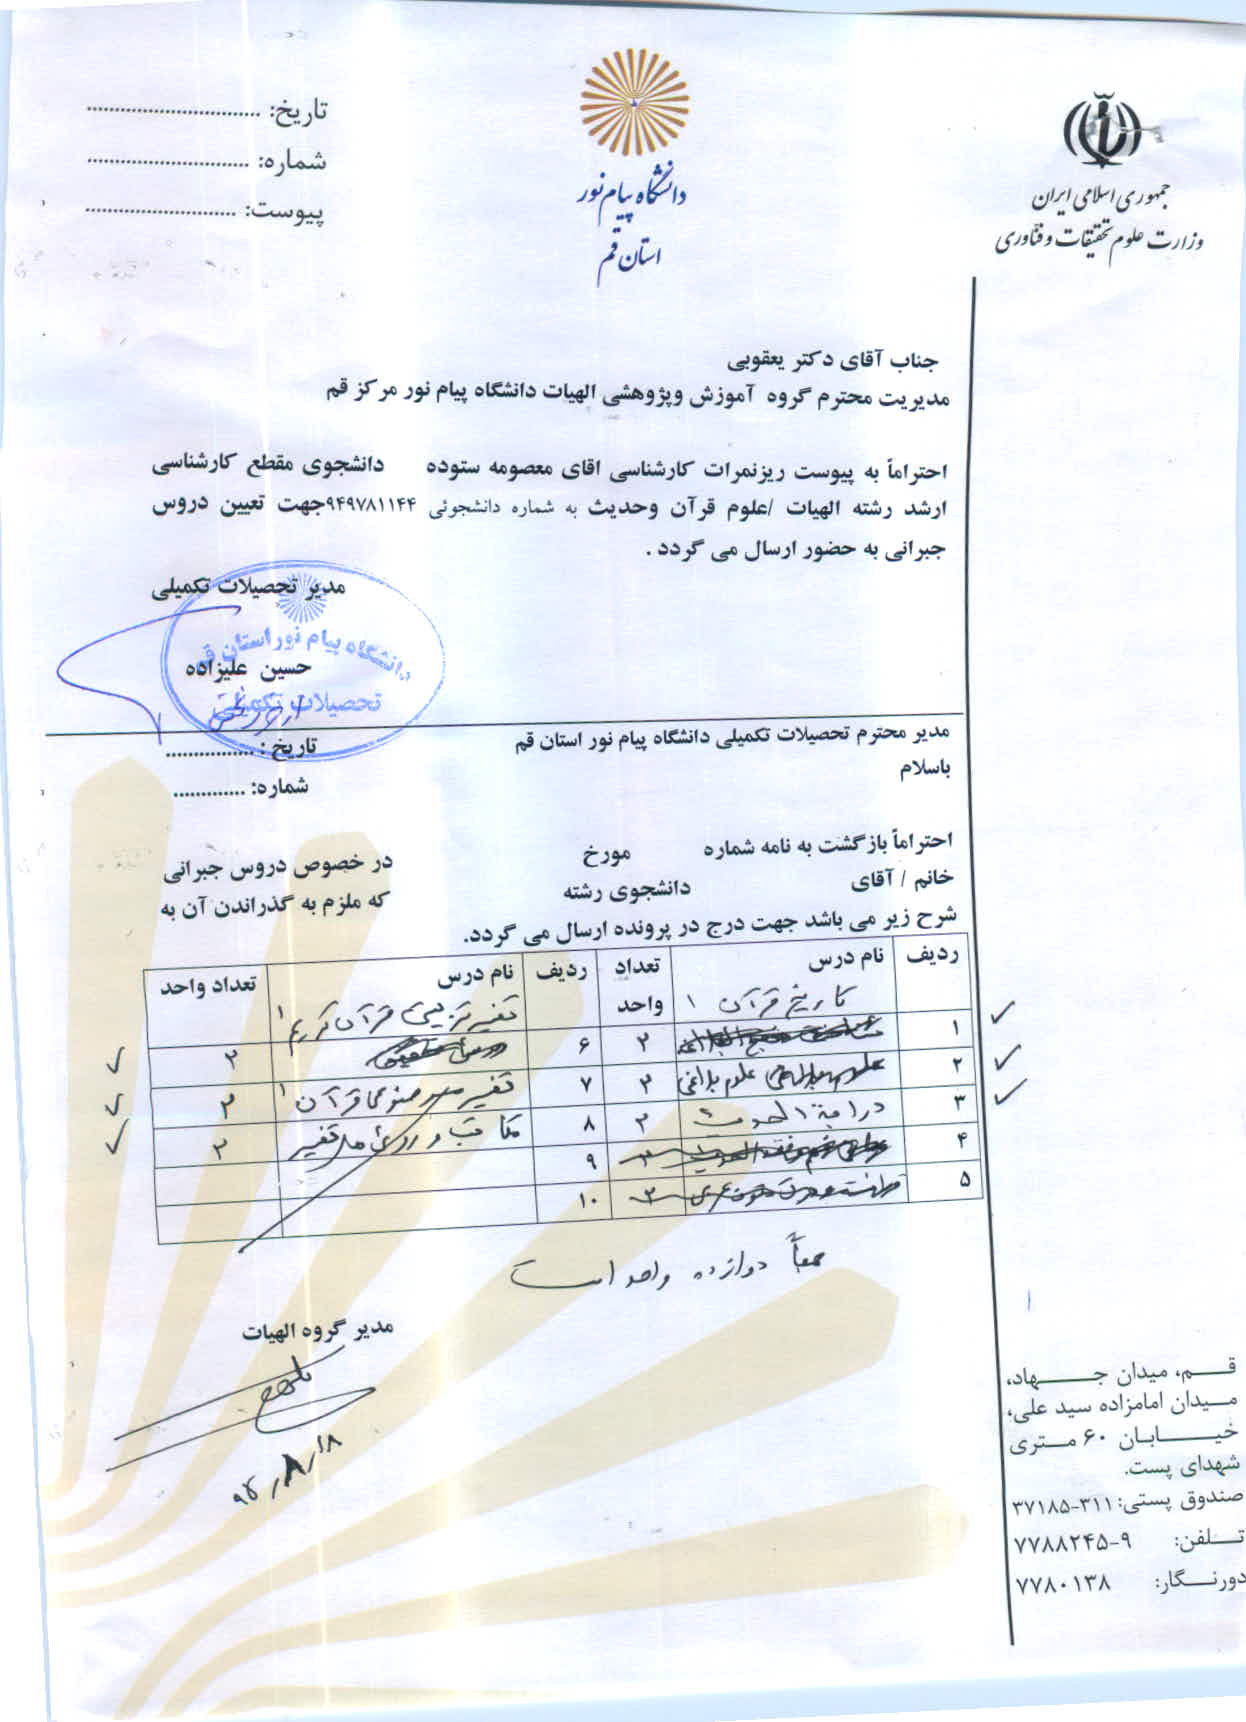 جمهوری اسلامی ایران
وزارت علوم تحقیقات و فناوری
دانشگاه پیام نور
استان قم
تاریخ: ..............................
شماره: ............................
پیوست: ..........................
جناب آقای دکتر یعقوبی
مدیریت محترم گروه آموزش وپژوهشی الهیات دانشگاه پیام نور مرکز قم
احتراماً به پیوست ریزنمرات کارشناسی اقای معصومه ستوده دانشجوی مقطع کارشناسی
ارشد رشته الهیات /علوم قرآن وحدیث به شماره دانشجوئی ۹۴۹۷۸۱۱۴۴جهت تعیین دروس
جبرانی به حضور ارسال می گردد .
مدیر تحصیلات تکمیلی
دانشگاه پیام نور استان قم
حسین علیزاده
تحصیلات تکمیلی
مدیر محترم تحصیلات تکمیلی دانشگاه پیام نور استان قم
تاریخ : ...............
باسلام
شماره: ............
احتراماً بازگشت به نامه شماره مورخ در خصوص دروس جبرانی
خانم / آقای دانشجوی رشته که ملزم به گذراندن آن به
شرح زیر می باشد جهت درج در پرونده ارسال می گردد.
ردیف نام درس تعداد واحد ردیف نام درس تعداد واحد
۱ تاریخ قرآن ۱ ۲ ۶ تفسیر ترتیبی قرآن کریم ۱ ۲
۲ علوم بلاغی ۲ ۷ تفسیر موضوعی قرآن ۱ ۲
۳ درایة الحدیث ۲ ۸ مکاتب و روش های تفسیر ۲
۴ ۲ ۹
۵ ۲ ۱۰
جمعاً دوازده واحد است
مدیر گروه الهیات
۹۴/۸/۱۸
قـــم، میدان جـــــهاد،
مـیدان امامزاده سید علی،
خیـــــابـان ۶۰ متـری
شهدای پست.
صندوق پستی: ۳۱۱-۳۷۱۸۵
تـــلفن: ۹-۷۷۸۸۲۴۵
دورنــگار: ۷۷۸۰۱۳۸